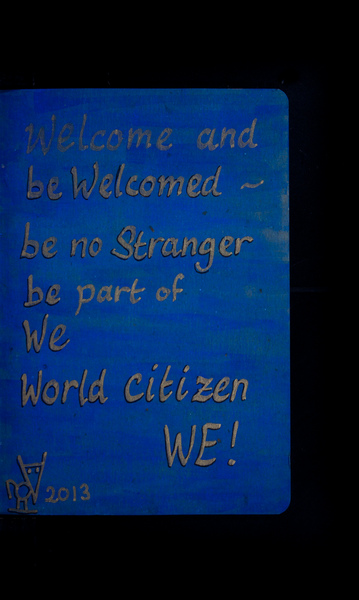 Welcome and
be Welcomed ~
be no Stranger
be part of
We
World Citizen
WE!
2013